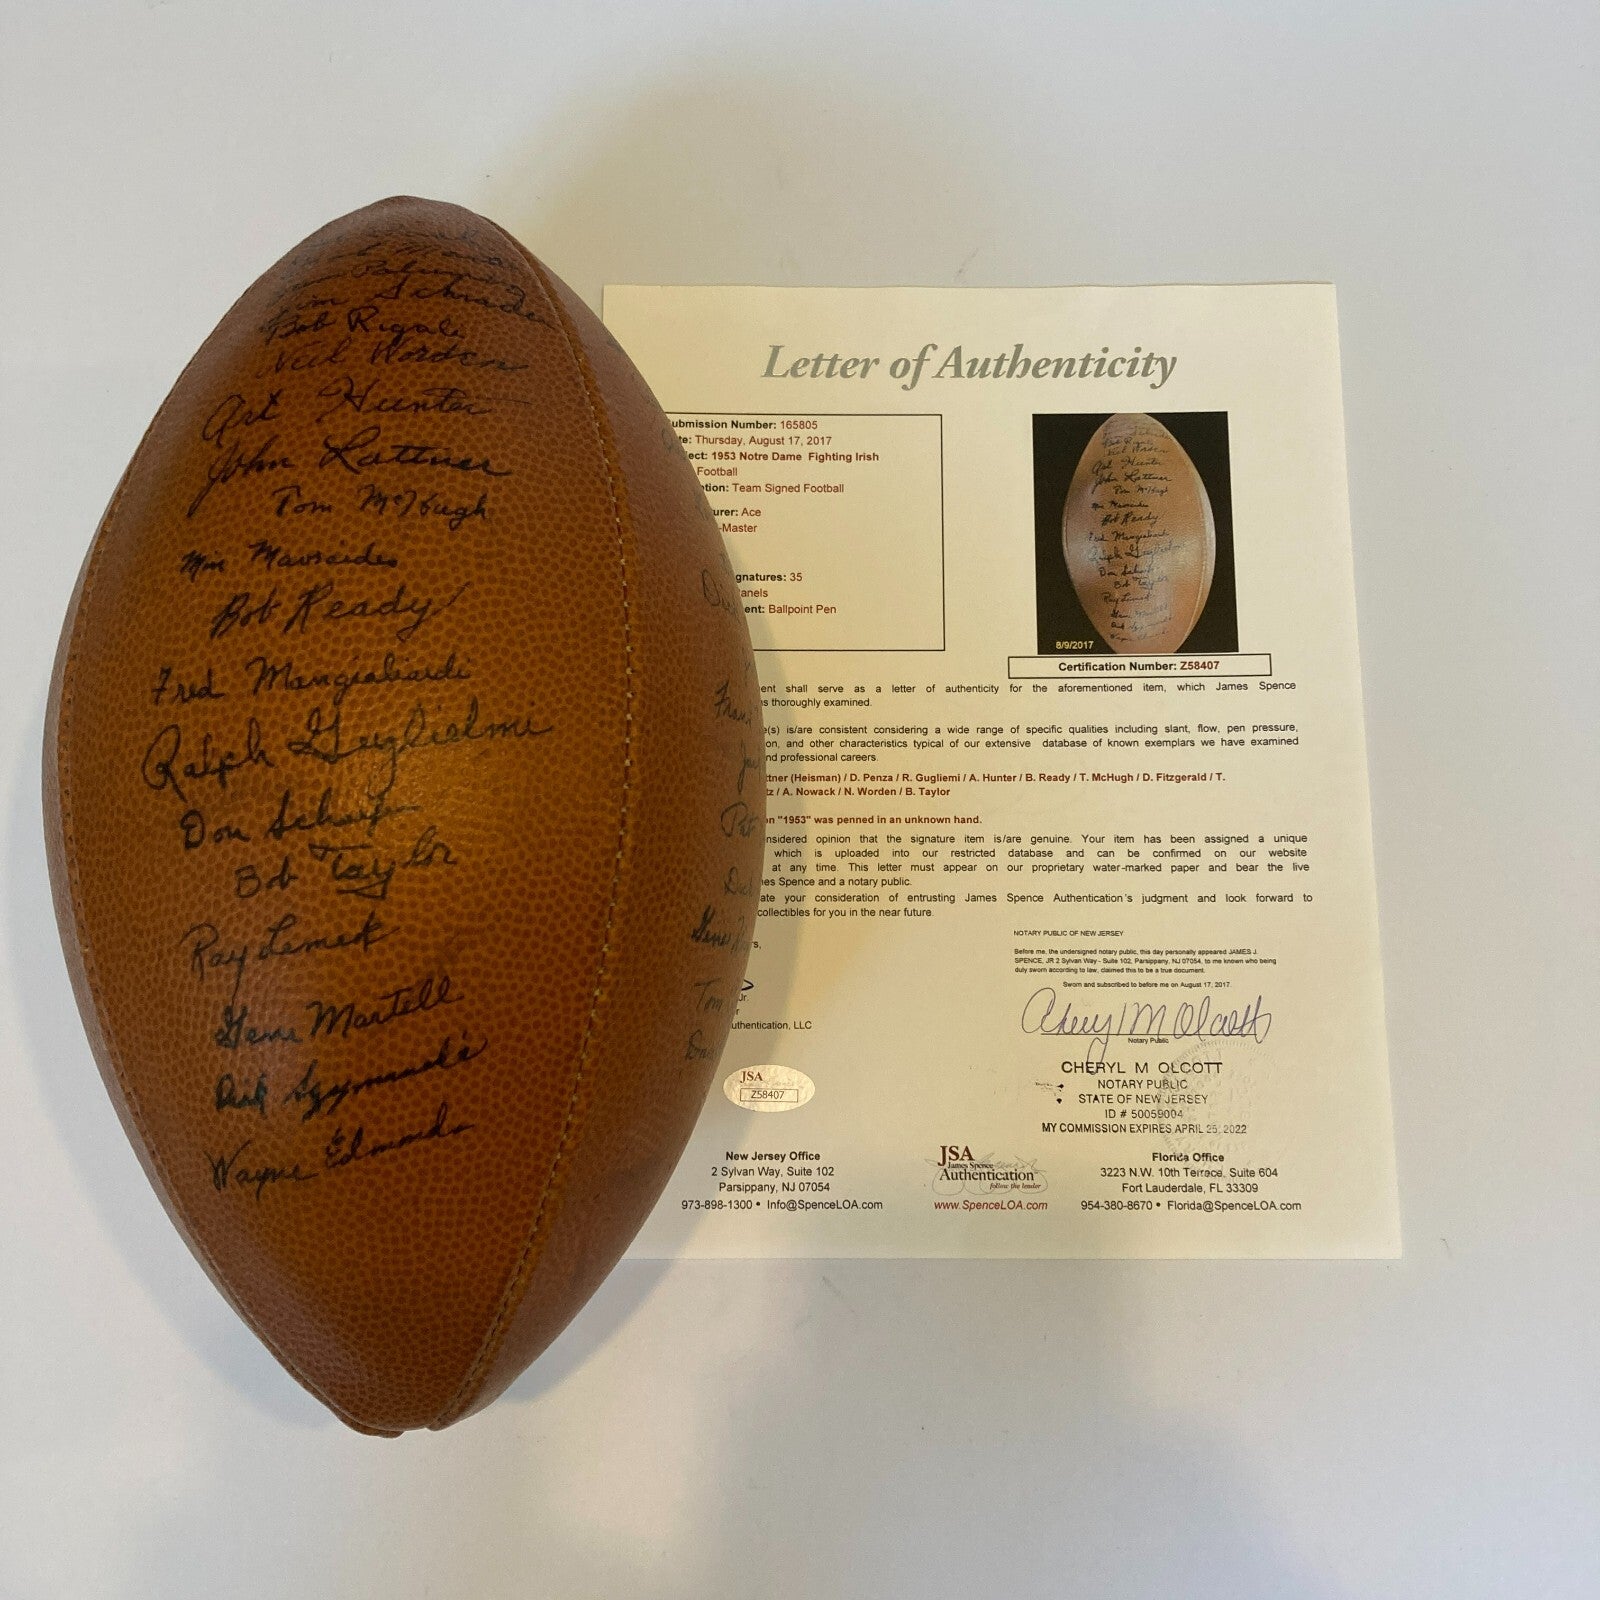 Jim Schrader
Bob Rigali
Neil Worden
Art Hunter
John Lattner
Tom McHugh
Min Mavraides
Bob Ready
Fred Mangialiardi
Ralph Guglielmi
Don Schaefer
Bob Taylor
Ray Lemek
Gene Martell
Dick Szymanski
Wayne Edmonds
Frank
Pat
Gene
Tom
Letter of Authenticity
ubmission Number: 165805
te: Thursday, August 17, 2017
ect: 1953 Notre Dame Fighting Irish
Football
tion: Team Signed Football
urer: Ace
-Master
gnatures: 35
anels
ent: Ballpoint Pen
8/9/2017
Certification Number: Z58407
ent shall serve as a letter of authenticity for the aforementioned item, which James Spence
s thoroughly examined.
e(s) is/are consistent considering a wide range of specific qualities including slant, flow, pen pressure,
on, and other characteristics typical of our extensive database of known exemplars we have examined
nd professional careers.
ttner (Heisman) / D. Penza / R. Gugliemi / A. Hunter / B. Ready / T. McHugh / D. Fitzgerald / T.
tz / A. Nowack / N. Worden / B. Taylor
on "1953" was penned in an unknown hand.
nsidered opinion that the signature item is/are genuine. Your item has been assigned a unique
which is uploaded into our restricted database and can be confirmed on our website
at any time. This letter must appear on our proprietary water-marked paper and bear the live
es Spence and a notary public.
ate your consideration of entrusting James Spence Authentication's judgment and look forward to
collectibles for you in the near future.
rs,
Jr
r
uthentication, LLC
NOTARY PUBLIC OF NEW JERSEY
Before me, the undersigned notary public, this day personally appeared JAMES J.
SPENCE, JR 2 Sylvan Way - Suite 102, Parsippany, NJ 07054, to me known who being
duly sworn according to law, claimed this to be a true document.
Sworn and subscribed to before me on August 17, 2017.
Cheryl M Olcott
Notary Public
CHERYL M OLCOTT
NOTARY PUBLIC
STATE OF NEW JERSEY
ID # 50059004
MY COMMISSION EXPIRES APRIL 25, 2022
JSA
Z58407
New Jersey Office
2 Sylvan Way, Suite 102
Parsippany, NJ 07054
973-898-1300 • Info@SpenceLOA.com
JSA
James Spence
Authentication
follow the leader
www.SpenceLOA.com
Florida Office
3223 N.W. 10th Terrace, Suite 604
Fort Lauderdale, FL 33309
954-380-8670 • Florida@SpenceLOA.com